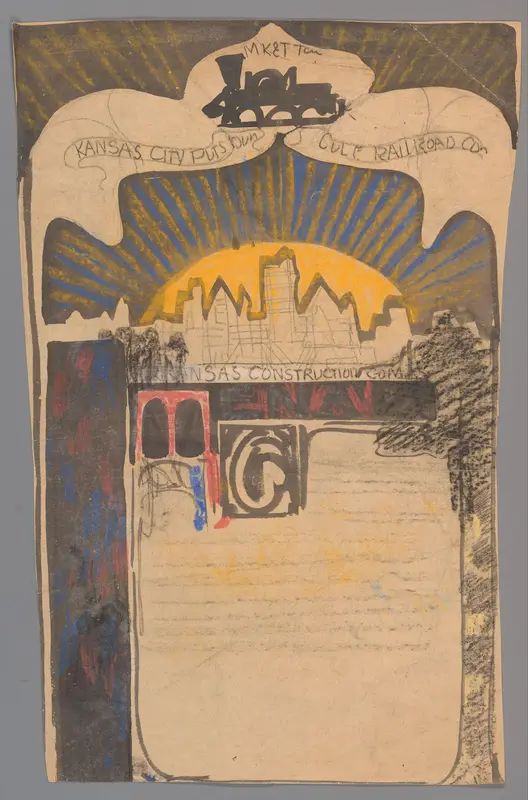 MK&T
KANSAS CITY PITTSBURG & GULF RAILROAD CO.
KANSAS CONSTRUCTION COM
G